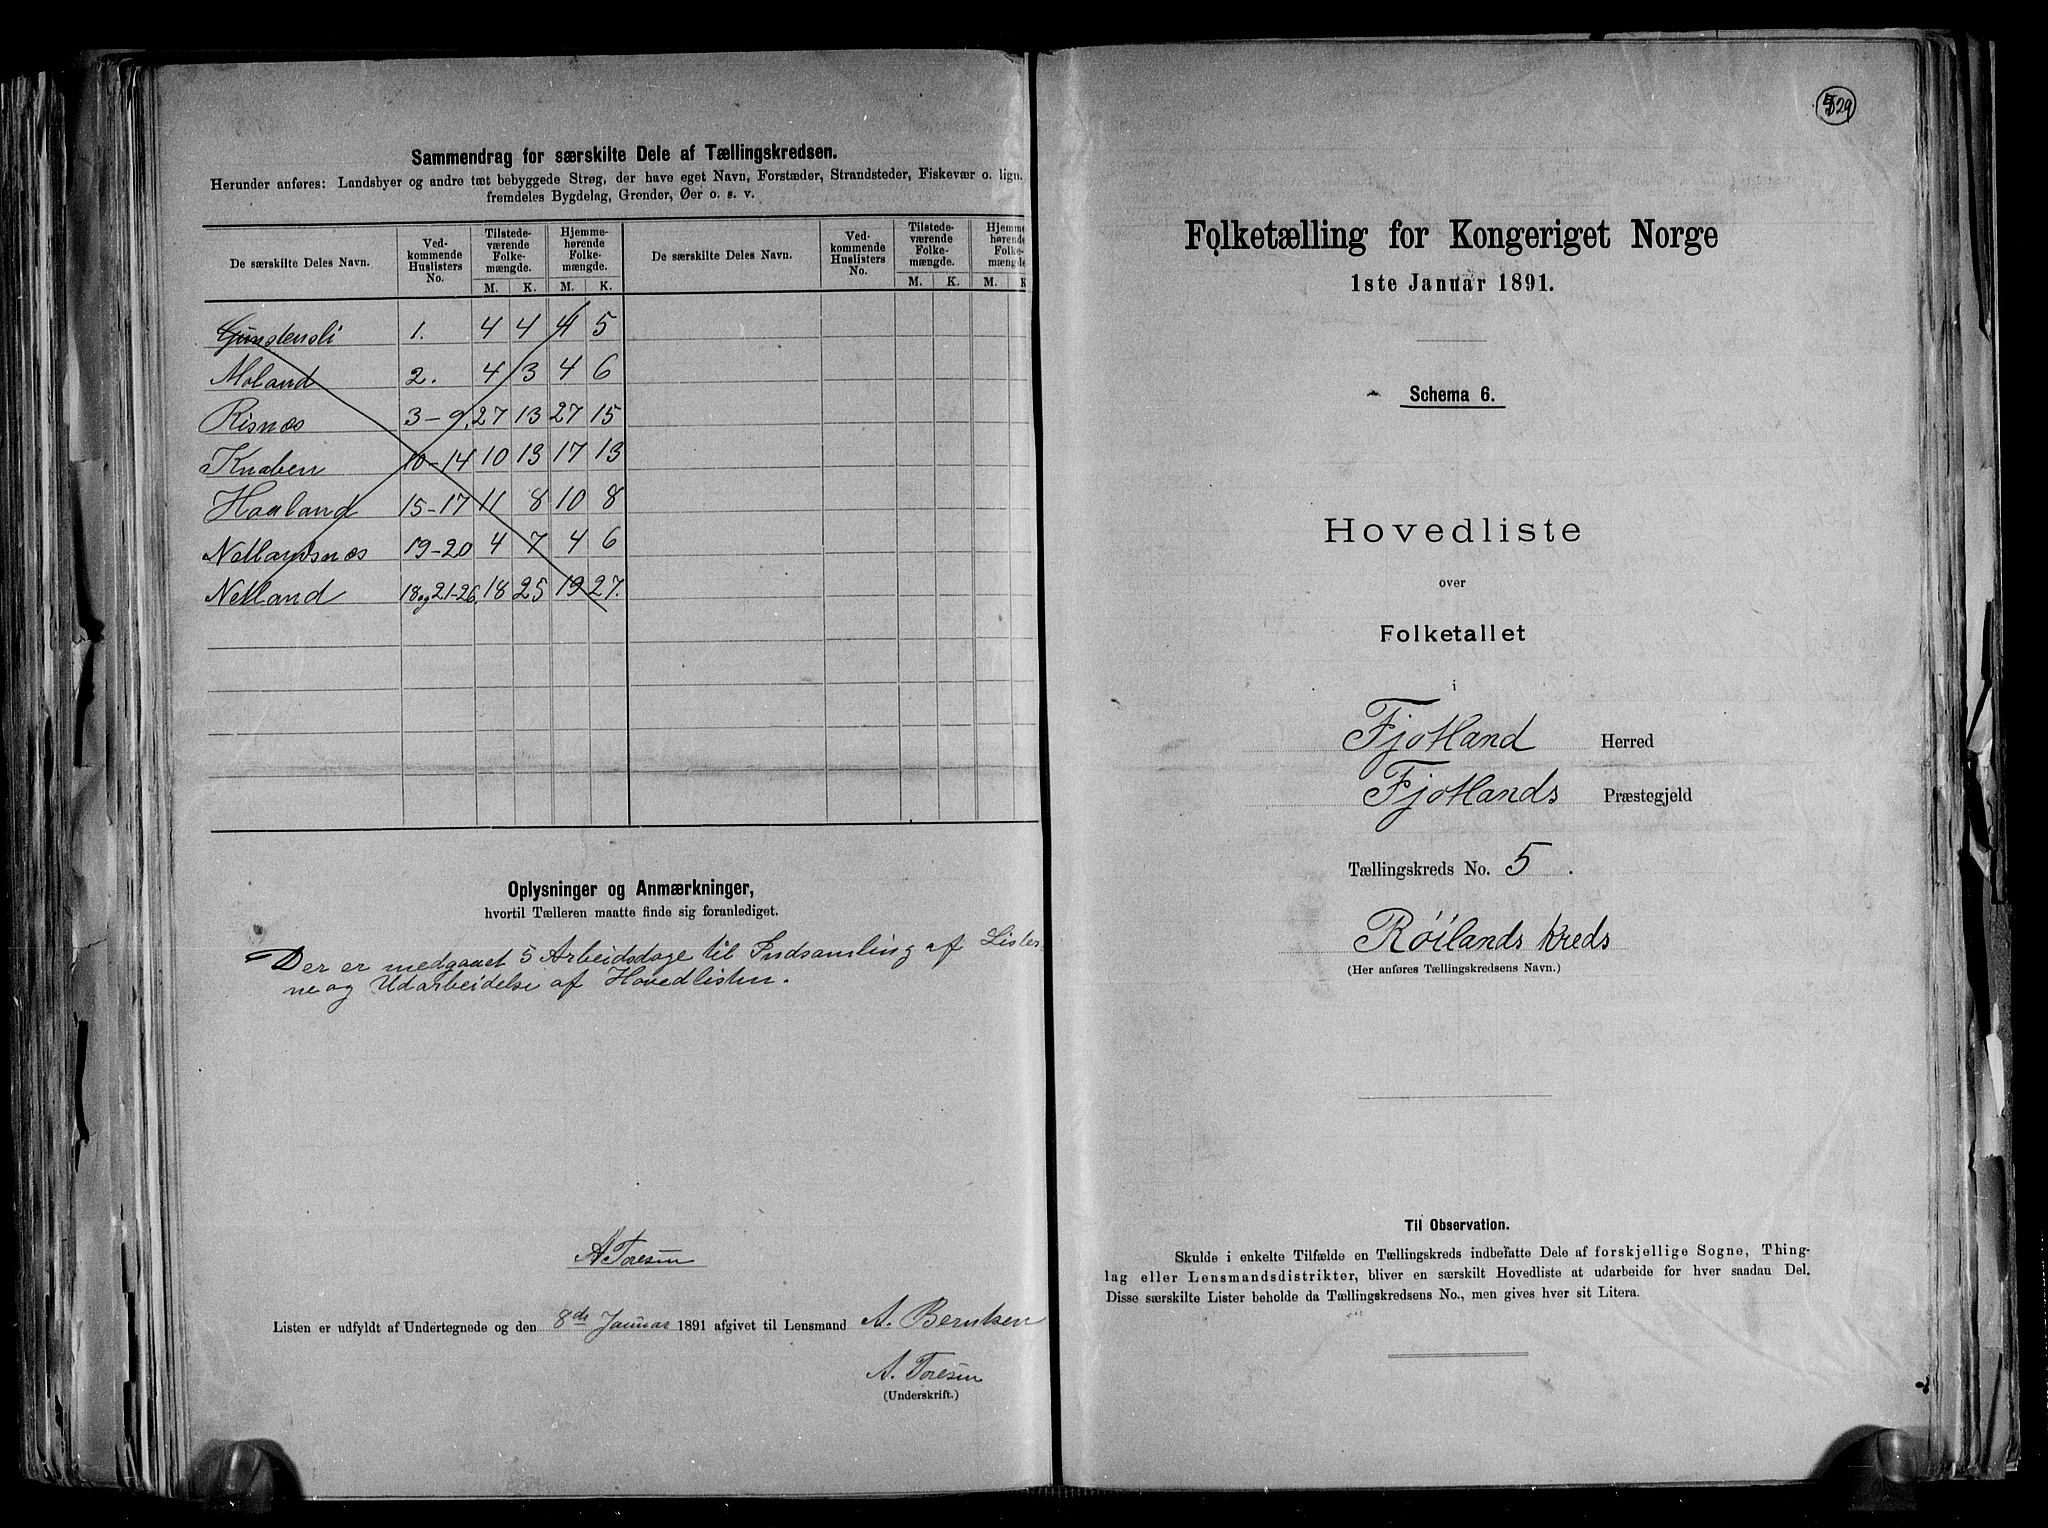 Sammendrag for særskilte Dele af Tællingskredsen.
Herunder anføres: Landsbyer og andre tæt bebyggede Strøg, der have eget Navn, Forstæder, Strandsteder, Fiskevær o. lign.
fremdeles Bygdelag, Grender, Øer o. s. v.
De særskilte Deles Navn. Ved-kommende Huslisters No. Tilstede-værende Folke-mængde. Hjemme-hørende Folke-mængde. De særskilte Deles Navn. Ved-kommende Huslisters No. Tilstede-værende Folke-mængde. Hjemme-hørende Folke-mængde
M. K. M. K. M. K. M. K
Gunstensli 1. 4 4 4 5
Moland 2. 4 3 4 6
Risnæs 3-9. 27 13 27 15
Knaben 10-14 10 13 17 13
Haaland 15-17 11 8 10 8
Netlandsnæs 19-20 4 7 4 6
Netland 18 og 21-26. 18 25 19 27.
Oplysninger og Anmærkninger,
hvortil Tælleren maatte finde sig foranlediget.
Der er medgaaet 5 Arbeidsdage til Indsamling af Lister-
ne og Udarbeidelse af Hovedlisten.
A. Toresen
Listen er udfyldt af Undertegnede og den 8de Januar 1891 afgivet til Lensmand A. Berntsen
A. Toresen
(Underskrift.)
529
Folketælling for Kongeriget Norge
1ste Januar 1891.
Schema 6.
Hovedliste
over
Folketallet
i
Fjotland Herred
Fjotlands Præstegjeld
Tællingskreds No. 5.
Røilands kreds
(Her anføres Tællingskredsens Navn.)
Til Observation.
Skulde i enkelte Tilfælde en Tællingskreds indbefatte Dele af forskjellige Sogne, Thing-
lag eller Lensmandsdistrikter, bliver en særskilt Hovedliste at udarbeide for hver saadan Del.
Disse særskilte Lister beholde da Tællingskredsens No., men gives hver sit Litera.